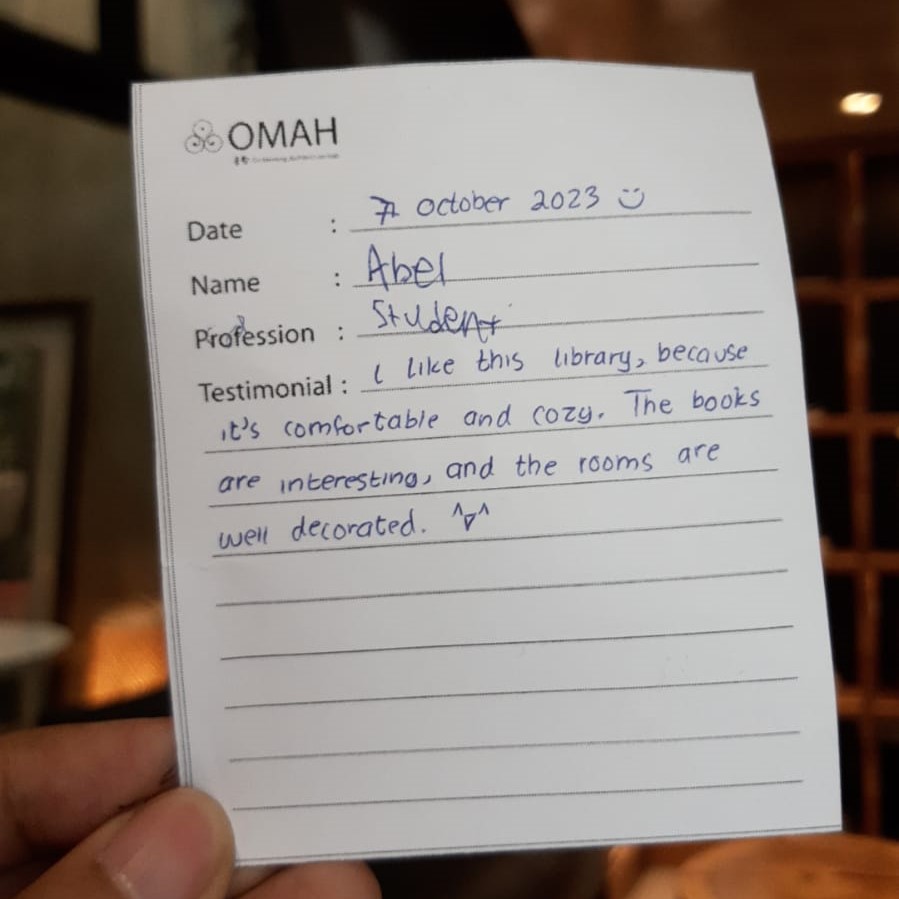 OMAH
Date : 7 October 2023
Name : Abel
Profession : Student
Testimonial : I like this library, because
it's comfortable and cozy. The books
are interesting, and the rooms are
well decorated. ^▽^